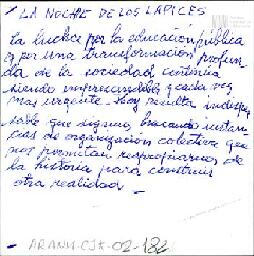 LA NOCHE DE LOS LAPICES
La lucha por la educación pública
y por una transformación profun
da de la sociedad continúa
siendo imprescindible y cada vez
mas urgente. Hoy resulta indispen
sable que sigamos buscando instan
cias de organización colectiva que
nos permitan reapropiarnos de
la historia para construir
otra realidad -
- ARANM-CJK-02-182